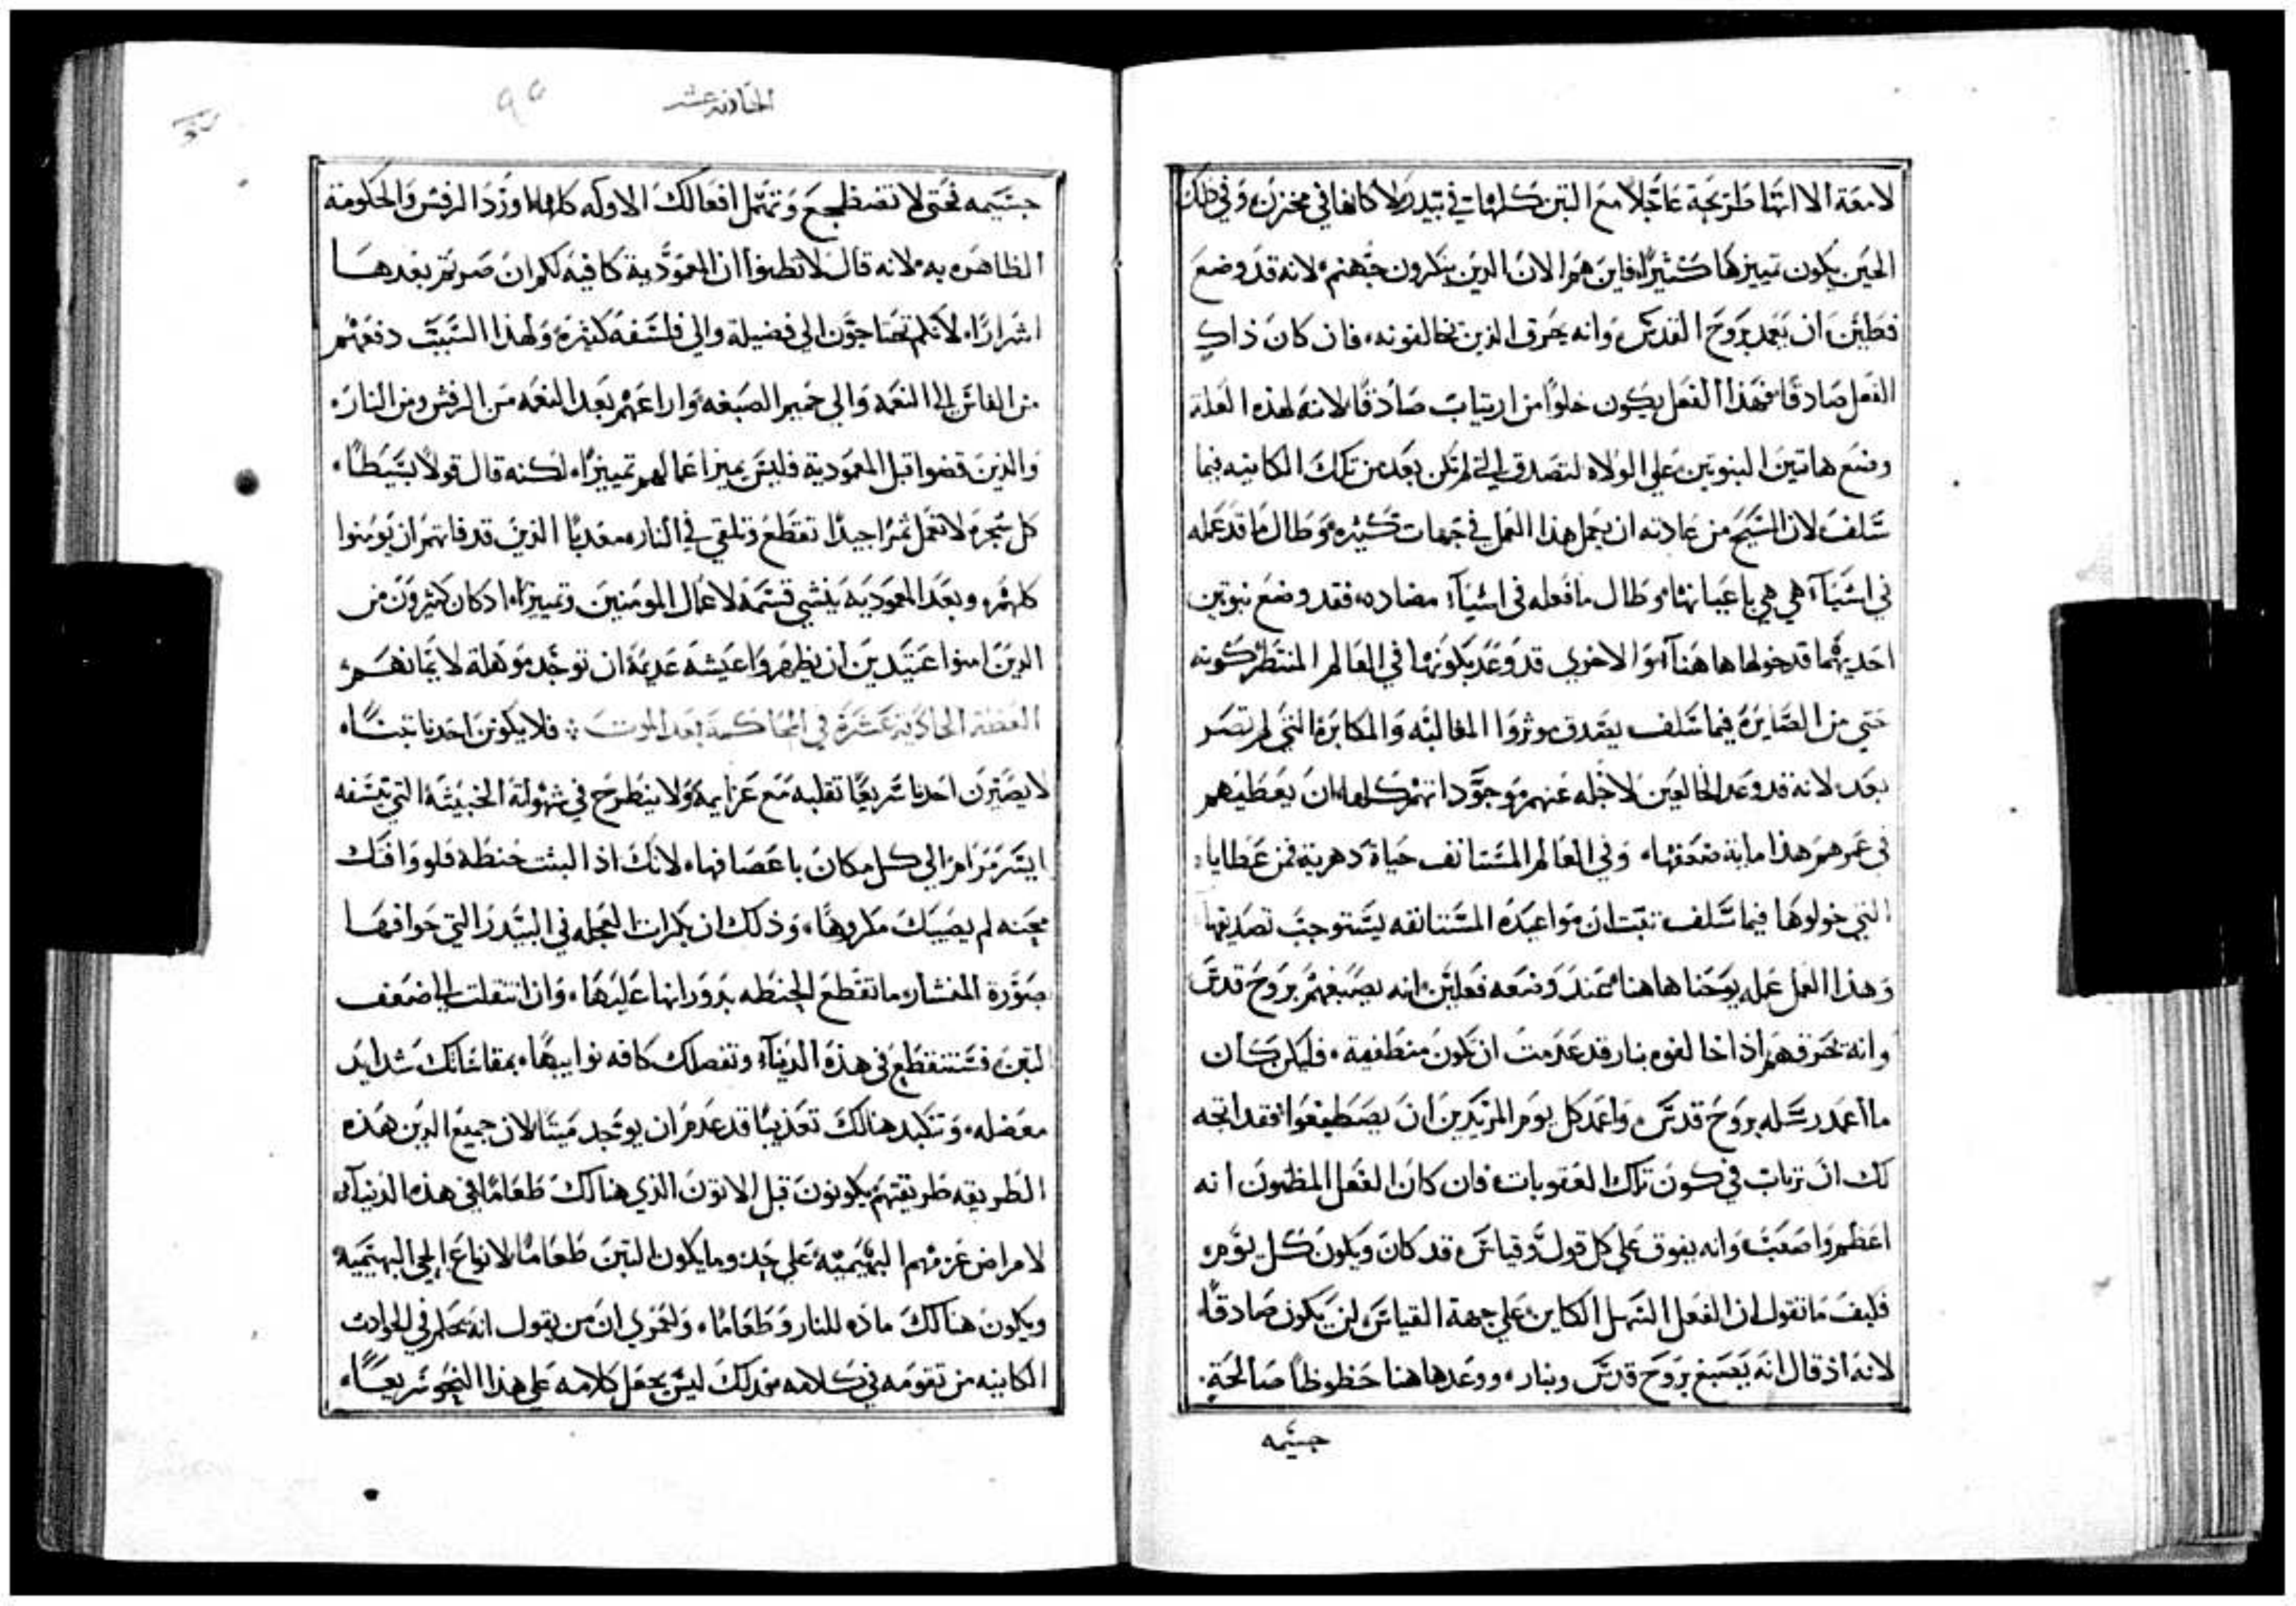 لامعة الا انها طريحة عاجلاً مع التبن كلها في بيدر لا كانها في مخزن، وفي ذلك
الحين يكون تمييزها كثيرًا، فاين هم الان الدين ينكرون جهنم، لانه قد وضع
فعلين ان يعمد بروح القدس، وانه يحرق الذين يخالفونه، فان كان ذاك
الفعل صادقًا فهذا الفعل يكون خلوًا من ارتياب صادقًا لانه لهذه العلة
وضع هاتين النبوتين علي الولاه لتصدق التي لم تكن بعد من تلك الكاينه فيما
سلف لان المسيح من عادته ان يعمل هذا العمل في جهات كثيره، وطال ما قد عمله
في اشيآء هي هي باعيانها، وطال ما فعله في اشيآء مضاده، فقد وضع نبوتين
احديهما قد خولها هاهنآ، والاخري قد وعد بكونها في العالم المنتظر كونه
حتي من الصايرة فيما سلف يصدق موثروا المغالبه والمكابرة التي لم تصر
بعد، لانه قد وعد الخالعين لاجله عنهم موجوداتهم كلها، ان يعطيهم
في عمرهم هذا ماية ضعفها، وفي العالم المستانف حياة دهرية فمن عطاياه
التي خولوها فيما سلف تثبت ان مواعيده المستانفه يستوجب تصديقها
وهذا العمل عمله يوحنا هاهنا عند وضعه فعلين، انه يصبغهم بروح قدس
وانه يحرقهم اذا خالفوه بنار قد عدمت ان تكون منطفية، فليكن كان
ما اعمد رسله بروح قدس، واعمد كل يوم المزيدين ان يصطبغوا، فقد اتجه
لك ان ترتاب في كون تلك العقوبات، فان كان الفعل المظنون انه
اعظم واصعب وانه يفوق علي كل قول وقياس، قد كان ويكون كل يوم،
فكيف ما تقول ان الفعل السهل الكاين علي جهة القياس لن يكون صادقًا،
لانه اذ قال انه يصبغ بروح قدس وبنار، ووعد هاهنا حظوظًا صالحة،
جسيمه
الحاديه عشر
جسيمه فحتي لا تضطجع وتهمل افعالك الاوله كلها، اورد الرفش والحكومة
الظاهره به، لانه قال لا تظنوا ان المعمودية كافيه لكم ان صرتم بعدها
اشرارًا، لانكم تحتاجون الي فضيلة والي فلسفه كثيرة، ولهذا السبب دفعهم
من الفاس الي النعمه والي حميم الصبغه، واراعهم بعد النعمه من الرفش ومن النار،
والذين قضوا قبل المعمودية فليس يميز اعمالهم تمييزًا، لكنه قال قولاً بسيطًا،
كل شجرة لا تعمل ثمرًا جيدًا تقطع وتلقي في النار معديًا الذين قد فاتهم ان يومنوا
كلهم، وبعد المعمودية ينشي قسمة لاعمال المومنين وتمييزًا، اد كان كثيرون من
الدين امنوا عتيدين ان يظهروا عيشه عديمة ان توجد موهلة لايمانهم،
العظة الحادية عشرة في المحاكمة بعد الموت، فلا يكونن احدنا تبنًا،
لا يصيرن احدنا سريعًا تقلبه مع عزايمه ولا ينطرح في شهوته الخبيثة التي تنسفه
ايسر مرام الي كل مكان باعصافها، لانك اذا لبثت حنطه فلو وافتك
محنه لم يصيبك مكروهًا، وذلك ان بكرات العجله في البيدر التي حوافها
بصورة المنشار، ما تقطع الحنطه بدورانها عليها، وان انتقلت الي ضعف
التبن، فستنقطع في هذه الدنيآ، وتفصلك كافه نوايبها، بمقاساتك شدايد
معضله، وتكبد هنالك تعذيبًا قد عدم ان يوجد ميتًا لان جميع الدين هذه
الطريقه طريقتهم يكونون قبل الاتون الذي هنالك طعامًا في هذه الدنيآ،
لامراض عزمهم البهيمية علي حد وما يكون التبن طعامًا لانواع الحي البهيمية
ويكون هنالك ماده للنار وطعامًا، ولعمري ان من يقول انه يحاكم في الحوادث
الكاينه من تقومه في كلامه من دلك ليس يجعل كلامه علي هذا النحو سريعًا،